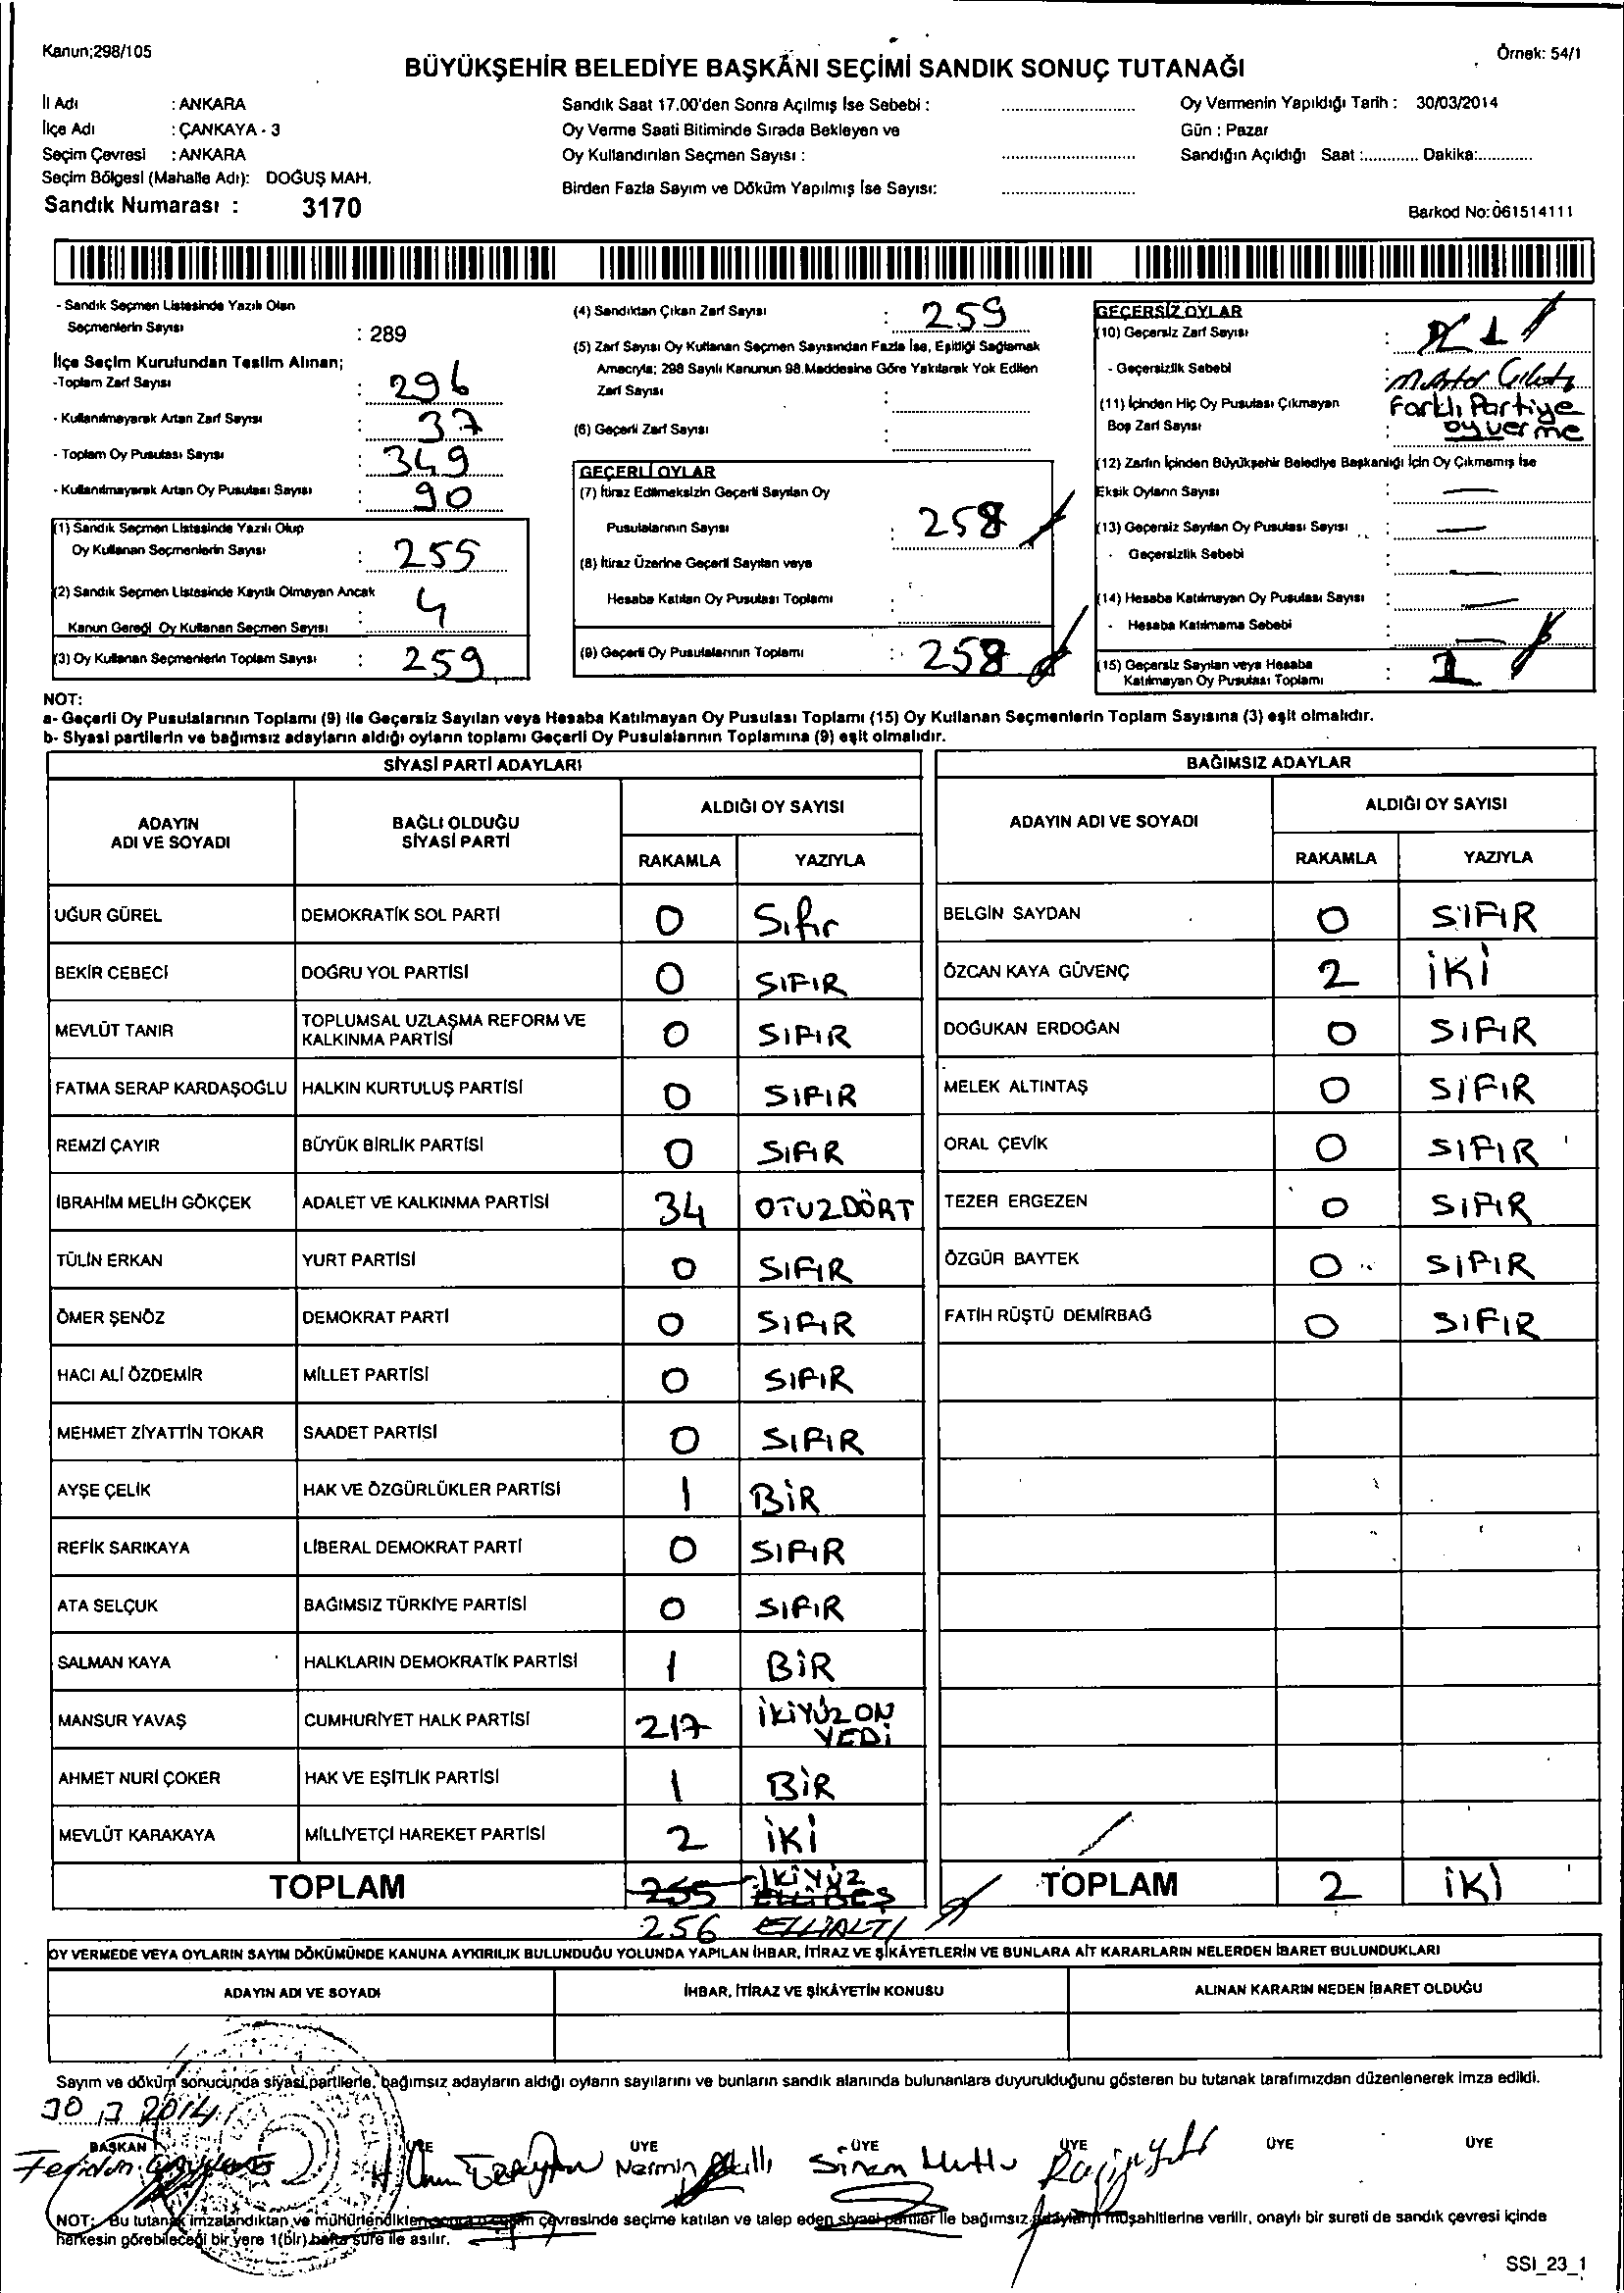 Kanun;298/105
Örnek: 54/1
BÜYÜKŞEHİR BELEDİYE BAŞKANI SEÇİMİ SANDIK SONUÇ TUTANAĞI
İl Adı : ANKARA
İlçe Adı : ÇANKAYA - 3
Seçim Çevresi : ANKARA
Seçim Bölgesi (Mahalle Adı): DOĞUŞ MAH.
Sandık Numarası : 3170
Sandık Saat 17.00'den Sonra Açılmış İse Sebebi :
Oy Verme Saati Bitiminde Sırada Bekleyen ve
Oy Kullandırılan Seçmen Sayısı :
Birden Fazla Sayım ve Döküm Yapılmış İse Sayısı:
Oy Vermenin Yapıldığı Tarih : 30/03/2014
Gün : Pazar
Sandığın Açıldığı Saat :............ Dakika:............
Barkod No:061514111
- Sandık Seçmen Listesinde Yazılı Olan
Seçmenlerin Sayısı : 289
İlçe Seçim Kurulundan Teslim Alınan;
-Toplam Zarf Sayısı : 296
- Kullanılmayarak Artan Zarf Sayısı : 37
- Toplam Oy Pusulası Sayısı : 349
- Kullanılmayarak Artan Oy Pusulası Sayısı : 90
(1) Sandık Seçmen Listesinde Yazılı Olup
Oy Kullanan Seçmenlerin Sayısı : 255
(2) Sandık Seçmen Listesinde Kayıtlı Olmayan Ancak
Kanun Gereği Oy Kullanan Seçmen Sayısı : 4
(3) Oy Kullanan Seçmenlerin Toplam Sayısı : 259
(4) Sandıktan Çıkan Zarf Sayısı : 259
(5) Zarf Sayısı Oy Kullanan Seçmen Sayısından Fazla İse, Eşitliği Sağlamak
Amacıyla; 298 Sayılı Kanunun 98.Maddesine Göre Yakılarak Yok Edilen
Zarf Sayısı :
(6) Geçerli Zarf Sayısı :
GEÇERLİ OYLAR
(7) İtiraz Edilmeksizin Geçerli Sayılan Oy
Pusulalarının Sayısı : 258
(8) İtiraz Üzerine Geçerli Sayılan veya
Hesaba Katılan Oy Pusulası Toplamı :
(9) Geçerli Oy Pusulalarının Toplamı : 258
GEÇERSİZ OYLAR
(10) Geçersiz Zarf Sayısı : 1
- Geçersizlik Sebebi
(11) İçinden Hiç Oy Pusulası Çıkmayan Farklı Partiye
Boş Zarf Sayısı : oy verme
(12) Zarfın İçinden Büyükşehir Belediye Başkanlığı İçin Oy Çıkmamış İse
Eksik Oyların Sayısı : —
(13) Geçersiz Sayılan Oy Pusulası Sayısı : —
- Geçersizlik Sebebi : —
(14) Hesaba Katılmayan Oy Pusulası Sayısı : —
- Hesaba Katılmama Sebebi : —
(15) Geçersiz Sayılan veya Hesaba
Katılmayan Oy Pusulası Toplamı : 1
NOT:
a- Geçerli Oy Pusulalarının Toplamı (9) ile Geçersiz Sayılan veya Hesaba Katılmayan Oy Pusulası Toplamı (15) Oy Kullanan Seçmenlerin Toplam Sayısına (3) eşit olmalıdır.
b- Siyasi partilerin ve bağımsız adayların aldığı oyların toplamı Geçerli Oy Pusulalarının Toplamına (9) eşit olmalıdır.
SİYASİ PARTİ ADAYLARI
ADAYIN ADI VE SOYADI
BAĞLI OLDUĞU SİYASİ PARTİ
ALDIĞI OY SAYISI
RAKAMLA YAZIYLA
UĞUR GÜREL DEMOKRATİK SOL PARTİ 0 Sıfır
BEKİR CEBECİ DOĞRU YOL PARTİSİ 0 SIFIR
MEVLÜT TANIR TOPLUMSAL UZLAŞMA REFORM VE KALKINMA PARTİSİ 0 SIFIR
FATMA SERAP KARDAŞOĞLU HALKIN KURTULUŞ PARTİSİ 0 SIFIR
REMZİ ÇAYIR BÜYÜK BİRLİK PARTİSİ 0 SIFIR
İBRAHİM MELİH GÖKÇEK ADALET VE KALKINMA PARTİSİ 34 OTUZDÖRT
TÜLİN ERKAN YURT PARTİSİ 0 SIFIR
ÖMER ŞENÖZ DEMOKRAT PARTİ 0 SIFIR
HACI ALİ ÖZDEMİR MİLLET PARTİSİ 0 SIFIR
MEHMET ZİYATTİN TOKAR SAADET PARTİSİ 0 SIFIR
AYŞE ÇELİK HAK VE ÖZGÜRLÜKLER PARTİSİ 1 BİR
REFİK SARIKAYA LİBERAL DEMOKRAT PARTİ 0 SIFIR
ATA SELÇUK BAĞIMSIZ TÜRKİYE PARTİSİ 0 SIFIR
SALMAN KAYA HALKLARIN DEMOKRATİK PARTİSİ 1 BİR
MANSUR YAVAŞ CUMHURİYET HALK PARTİSİ 217 İKİYÜZON YEDİ
AHMET NURİ ÇOKER HAK VE EŞİTLİK PARTİSİ 1 BİR
MEVLÜT KARAKAYA MİLLİYETÇİ HAREKET PARTİSİ 2 İKİ
TOPLAM 255 İKİYÜZ ELLİBEŞ
256 ELLİALTI
BAĞIMSIZ ADAYLAR
ADAYIN ADI VE SOYADI
ALDIĞI OY SAYISI
RAKAMLA YAZIYLA
BELGİN SAYDAN 0 SIFIR
ÖZCAN KAYA GÜVENÇ 2 İKİ
DOĞUKAN ERDOĞAN 0 SIFIR
MELEK ALTINTAŞ 0 SIFIR
ORAL ÇEVİK 0 SIFIR
TEZER ERGEZEN 0 SIFIR
ÖZGÜR BAYTEK 0 SIFIR
FATİH RÜŞTÜ DEMİRBAĞ 0 SIFIR
TOPLAM 2 İKİ
OY VERMEDE VEYA OYLARIN SAYIM DÖKÜMÜNDE KANUNA AYKIRILIK BULUNDUĞU YOLUNDA YAPILAN İHBAR, İTİRAZ VE ŞİKÂYETLERİN VE BUNLARA AİT KARARLARIN NELERDEN İBARET BULUNDUKLARI
ADAYIN ADI VE SOYADI İHBAR, İTİRAZ VE ŞİKÂYETİN KONUSU ALINAN KARARIN NEDEN İBARET OLDUĞU
Sayım ve döküm sonucunda siyasi partilerle, bağımsız adayların aldığı oyların sayılarını ve bunların sandık alanında bulunanlara duyurulduğunu gösteren bu tutanak tarafımızdan düzenlenerek imza edildi.
30 3 2014
BAŞKAN ÜYE ÜYE ÜYE ÜYE ÜYE ÜYE
Nermin Sinem Mutlu
NOT: Bu tutanak imzalandıktan ve mühürlendikten sonra o seçim çevresinde seçime katılan ve talep eden siyasi partiler ile bağımsız adayların müşahitlerine verilir, onaylı bir sureti de sandık çevresi içinde
herkesin görebileceği bir yere 1(bir) hafta süre ile asılır.
SSI_23_1